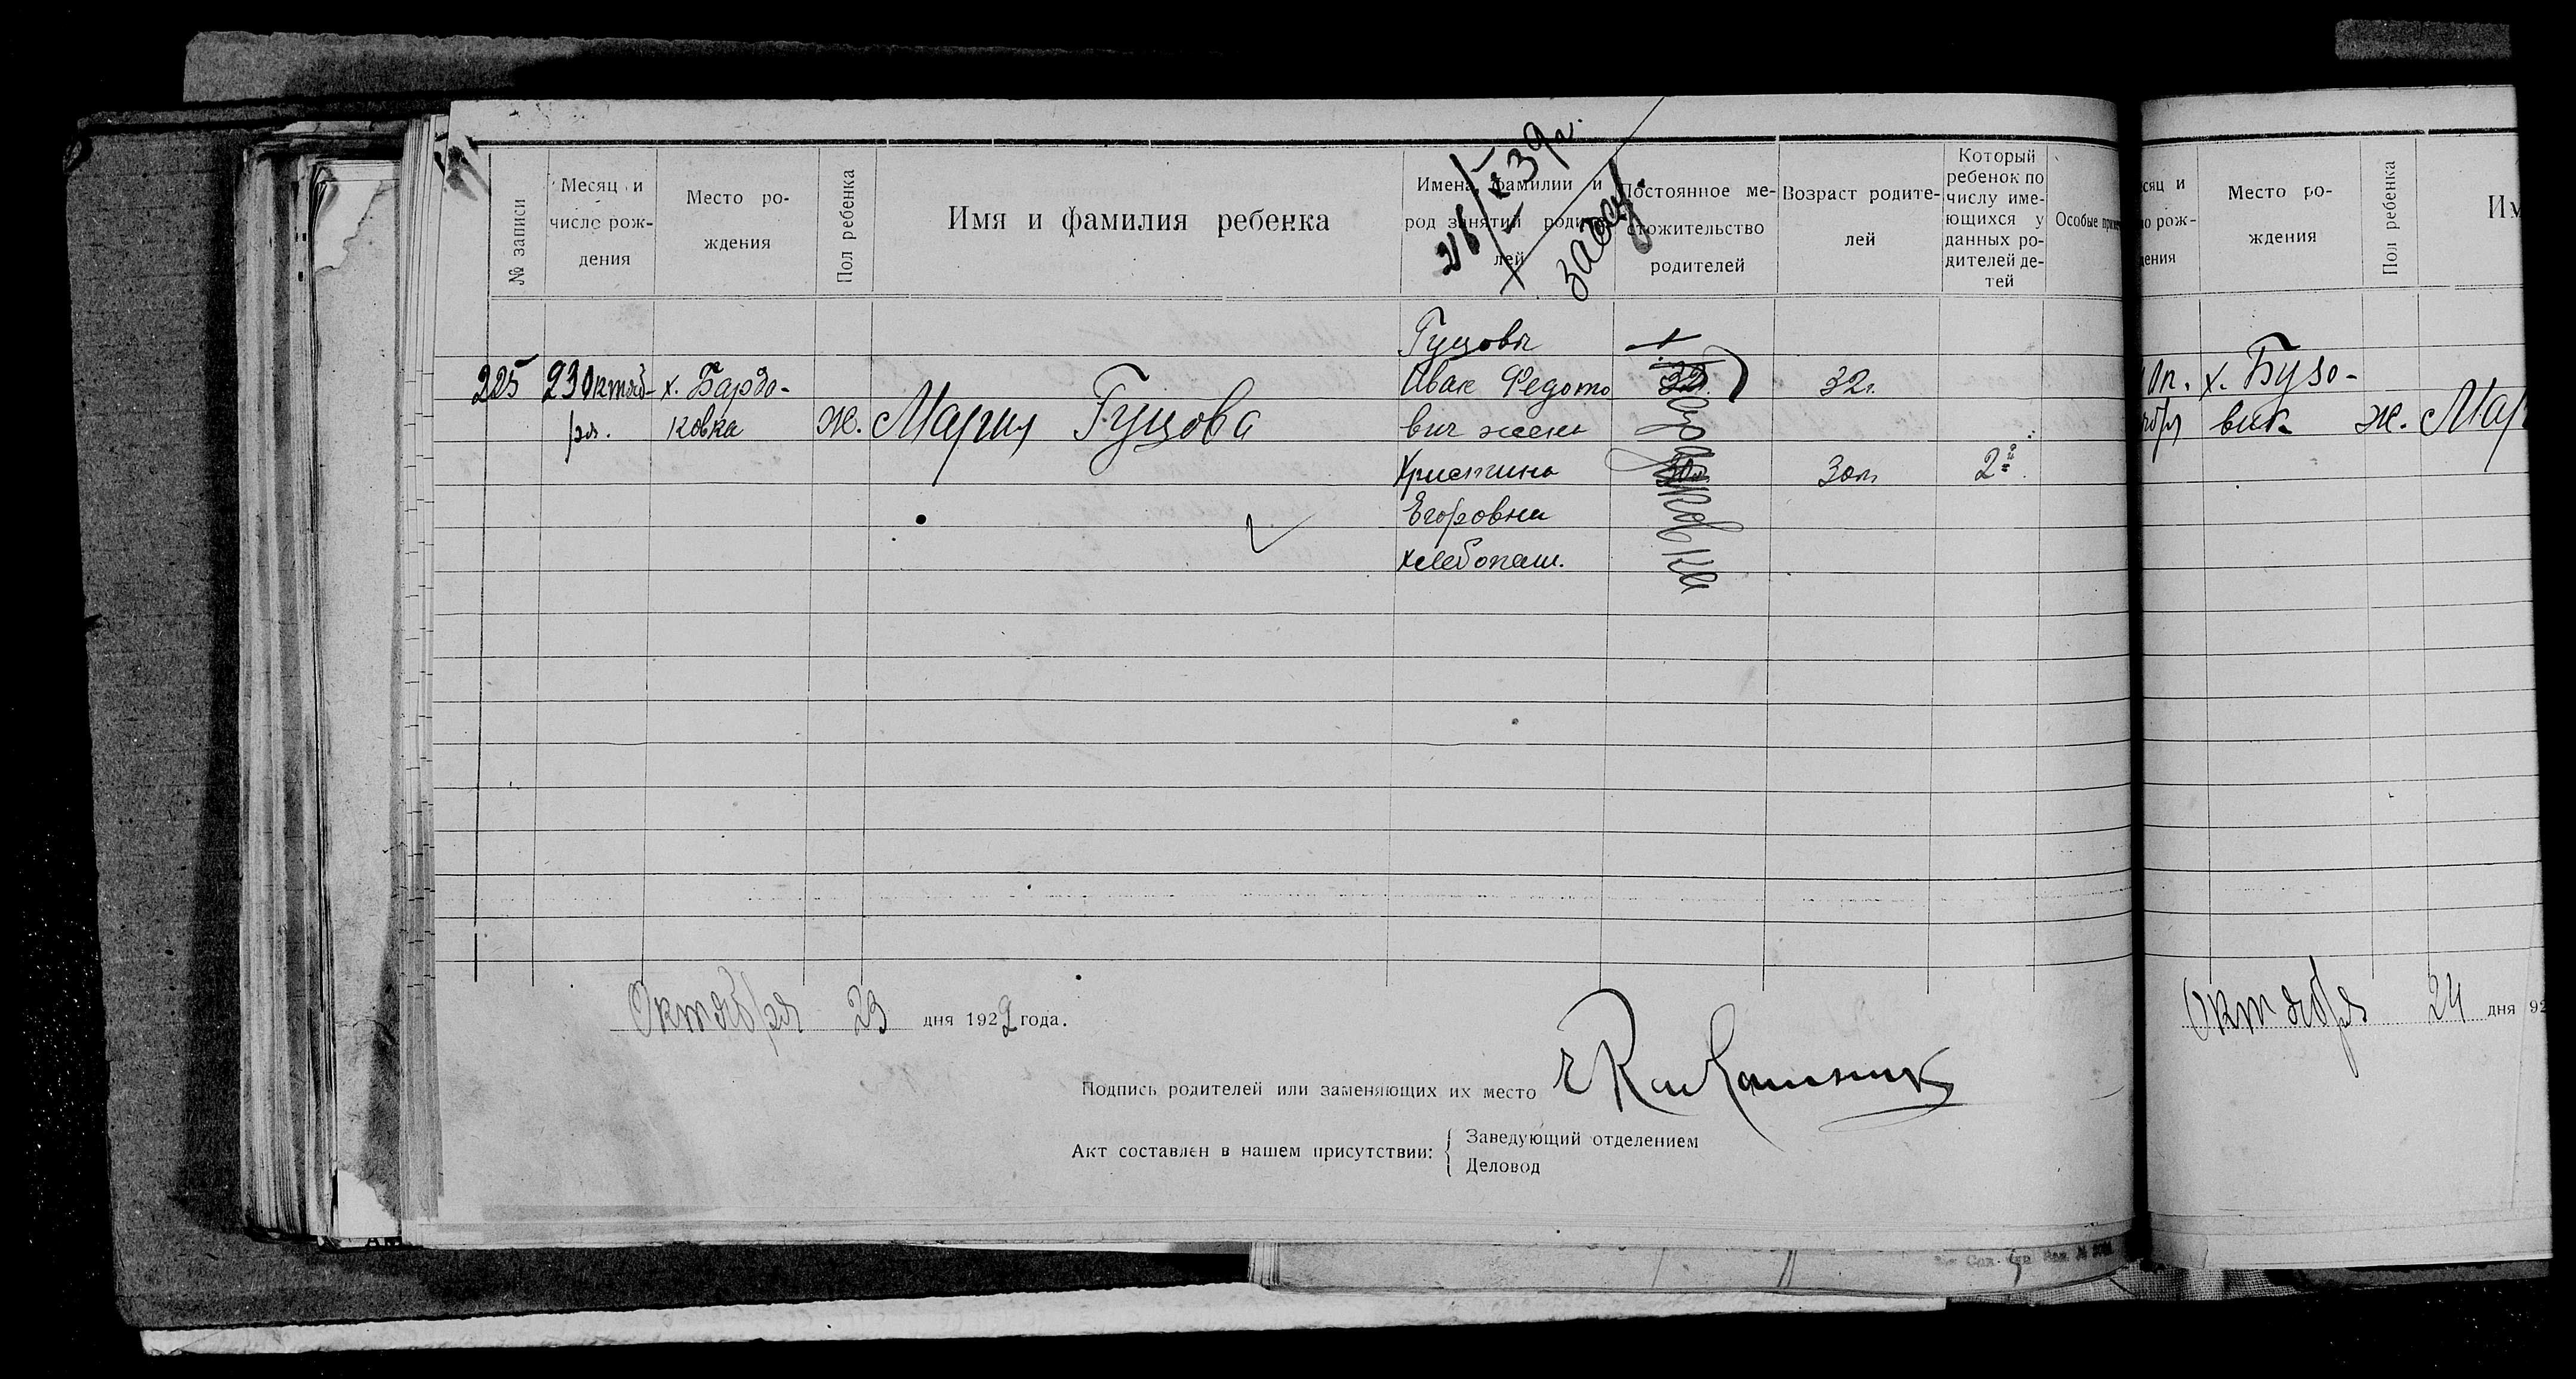 26/X 39г.
№ записи
Месяц и
число рож-
дения
Место ро-
ждения
Пол ребенка
Имя и фамилия ребенка
Имена, фамилии и
род занятий родите-
лей
Постоянное ме-
стожительство
родителей
Возраст родите-
лей
Который
ребенок по
числу име-
ющихся у
данных ро-
дителей де-
тей
Особые
225
23 Октяб-
ря.
х. Бардо-
ковка
ж.
Мария Гуцова
Гуцовы
Иван Федото
вич жена
Христина
Егоровна
хлебопаш.
32г.
30л
2й
Октября 23 дня 1922 года.
Подпись родителей или заменяющих их место
Акт составлен в нашем присутствии:
Заведующий отделением
Деловод
Место ро-
ждения
Пол ребенка
х. Бузо-
вик
ж.
Октября 24 дня 92